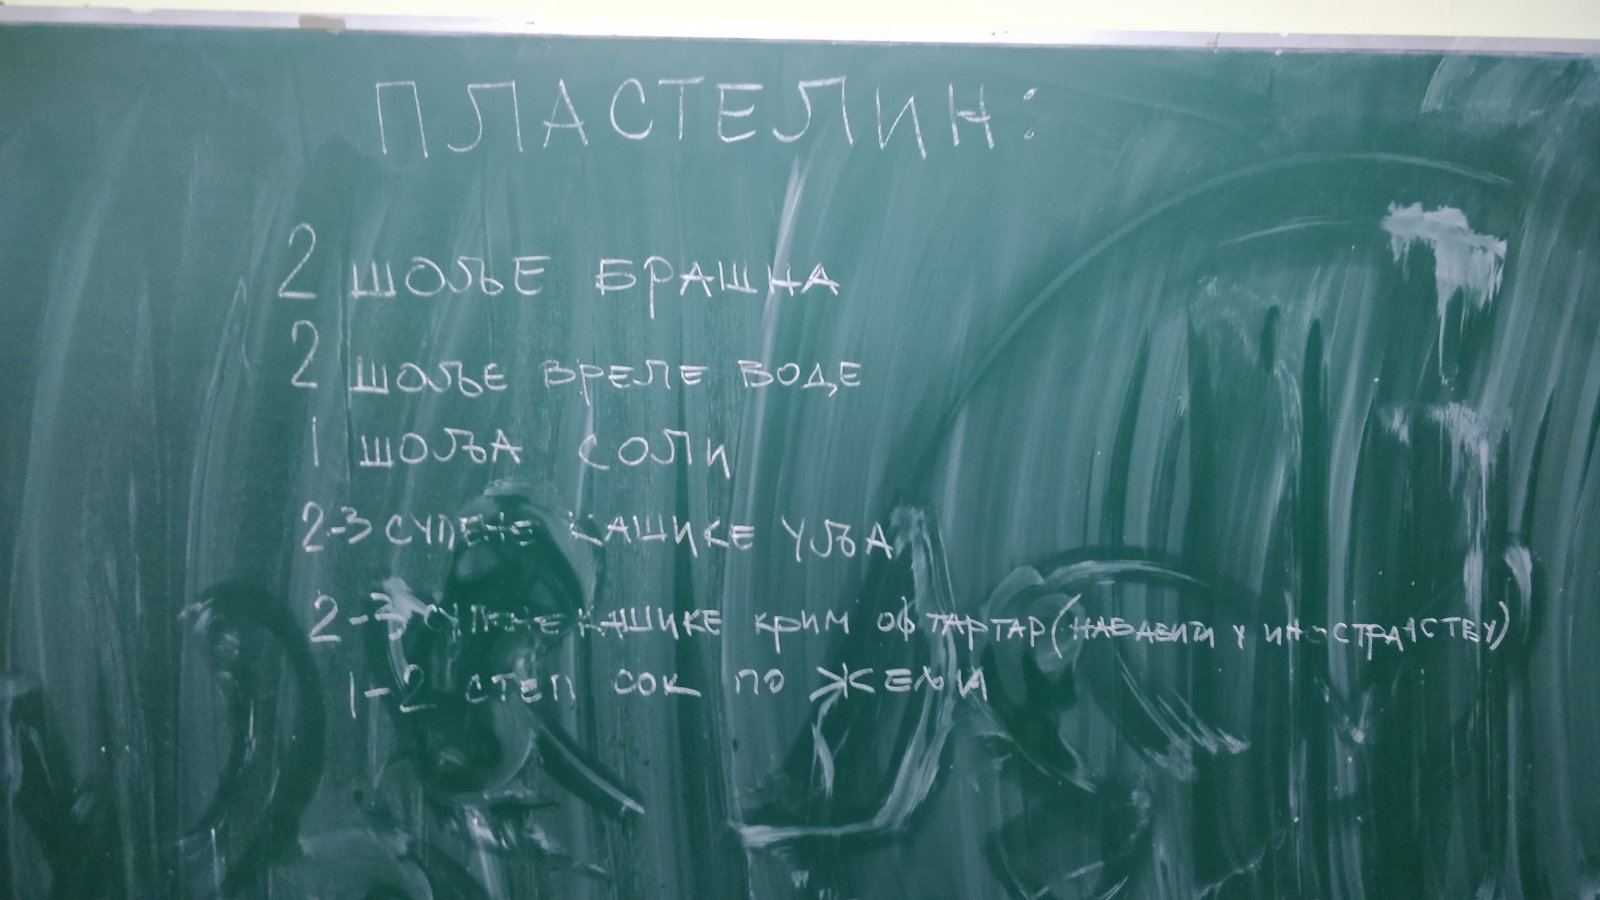 ПЛАСТЕЛИН:
2 ШОЉЕ БРАШНА
2 ШОЉЕ ВРЕЛЕ ВОДЕ
1 ШОЉА СОЛИ
2-3 СУПЕНЕ КАШИКЕ УЉА
2-3 СУПЕНЕ КАШИКЕ КРИМ ОФ ТАРТАР (НАБАВИТИ У ИНОСТРАНСТВУ)
1-2 СТЕП СОК ПО ЖЕЉИ